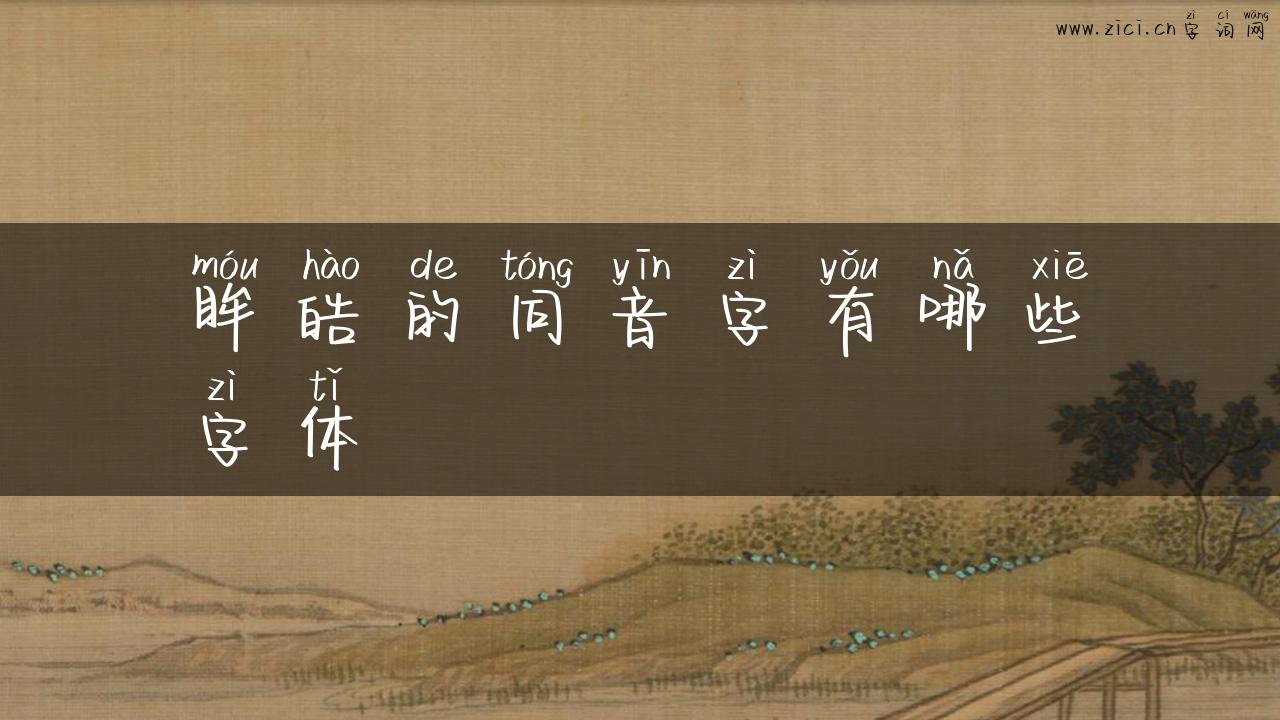 zì cí wǎng
www.zici.cn字词网
móu hào de tóng yīn zì yǒu nǎ xiē
眸皓的同音字有哪些
zì tǐ
字体